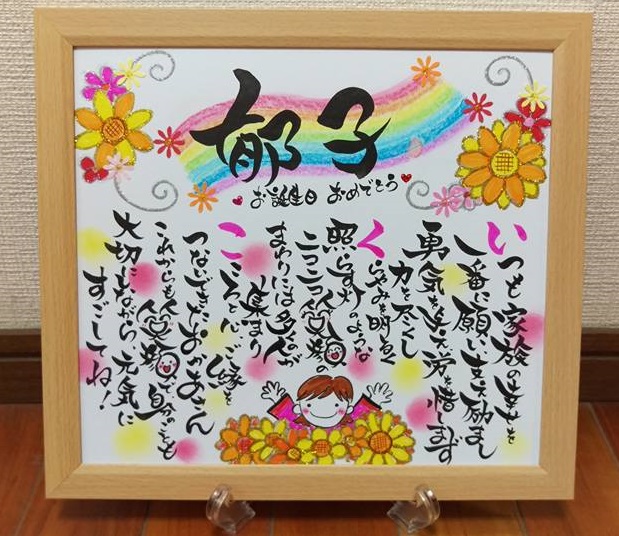 郁子
お誕生日 おめでとう
いつも家族の幸せを
一番に願い 支え 励まし
勇気を与え 労を惜しまず
力を尽くし
くらやみを明るく
照らす灯のような
ニコニコ笑顔の
まわりには多くの人が
集まり
こころと心 ご縁を
つないできたおかあさん
これからも笑顔で自分のことも
大切にしながら 元気に
すごしてね!